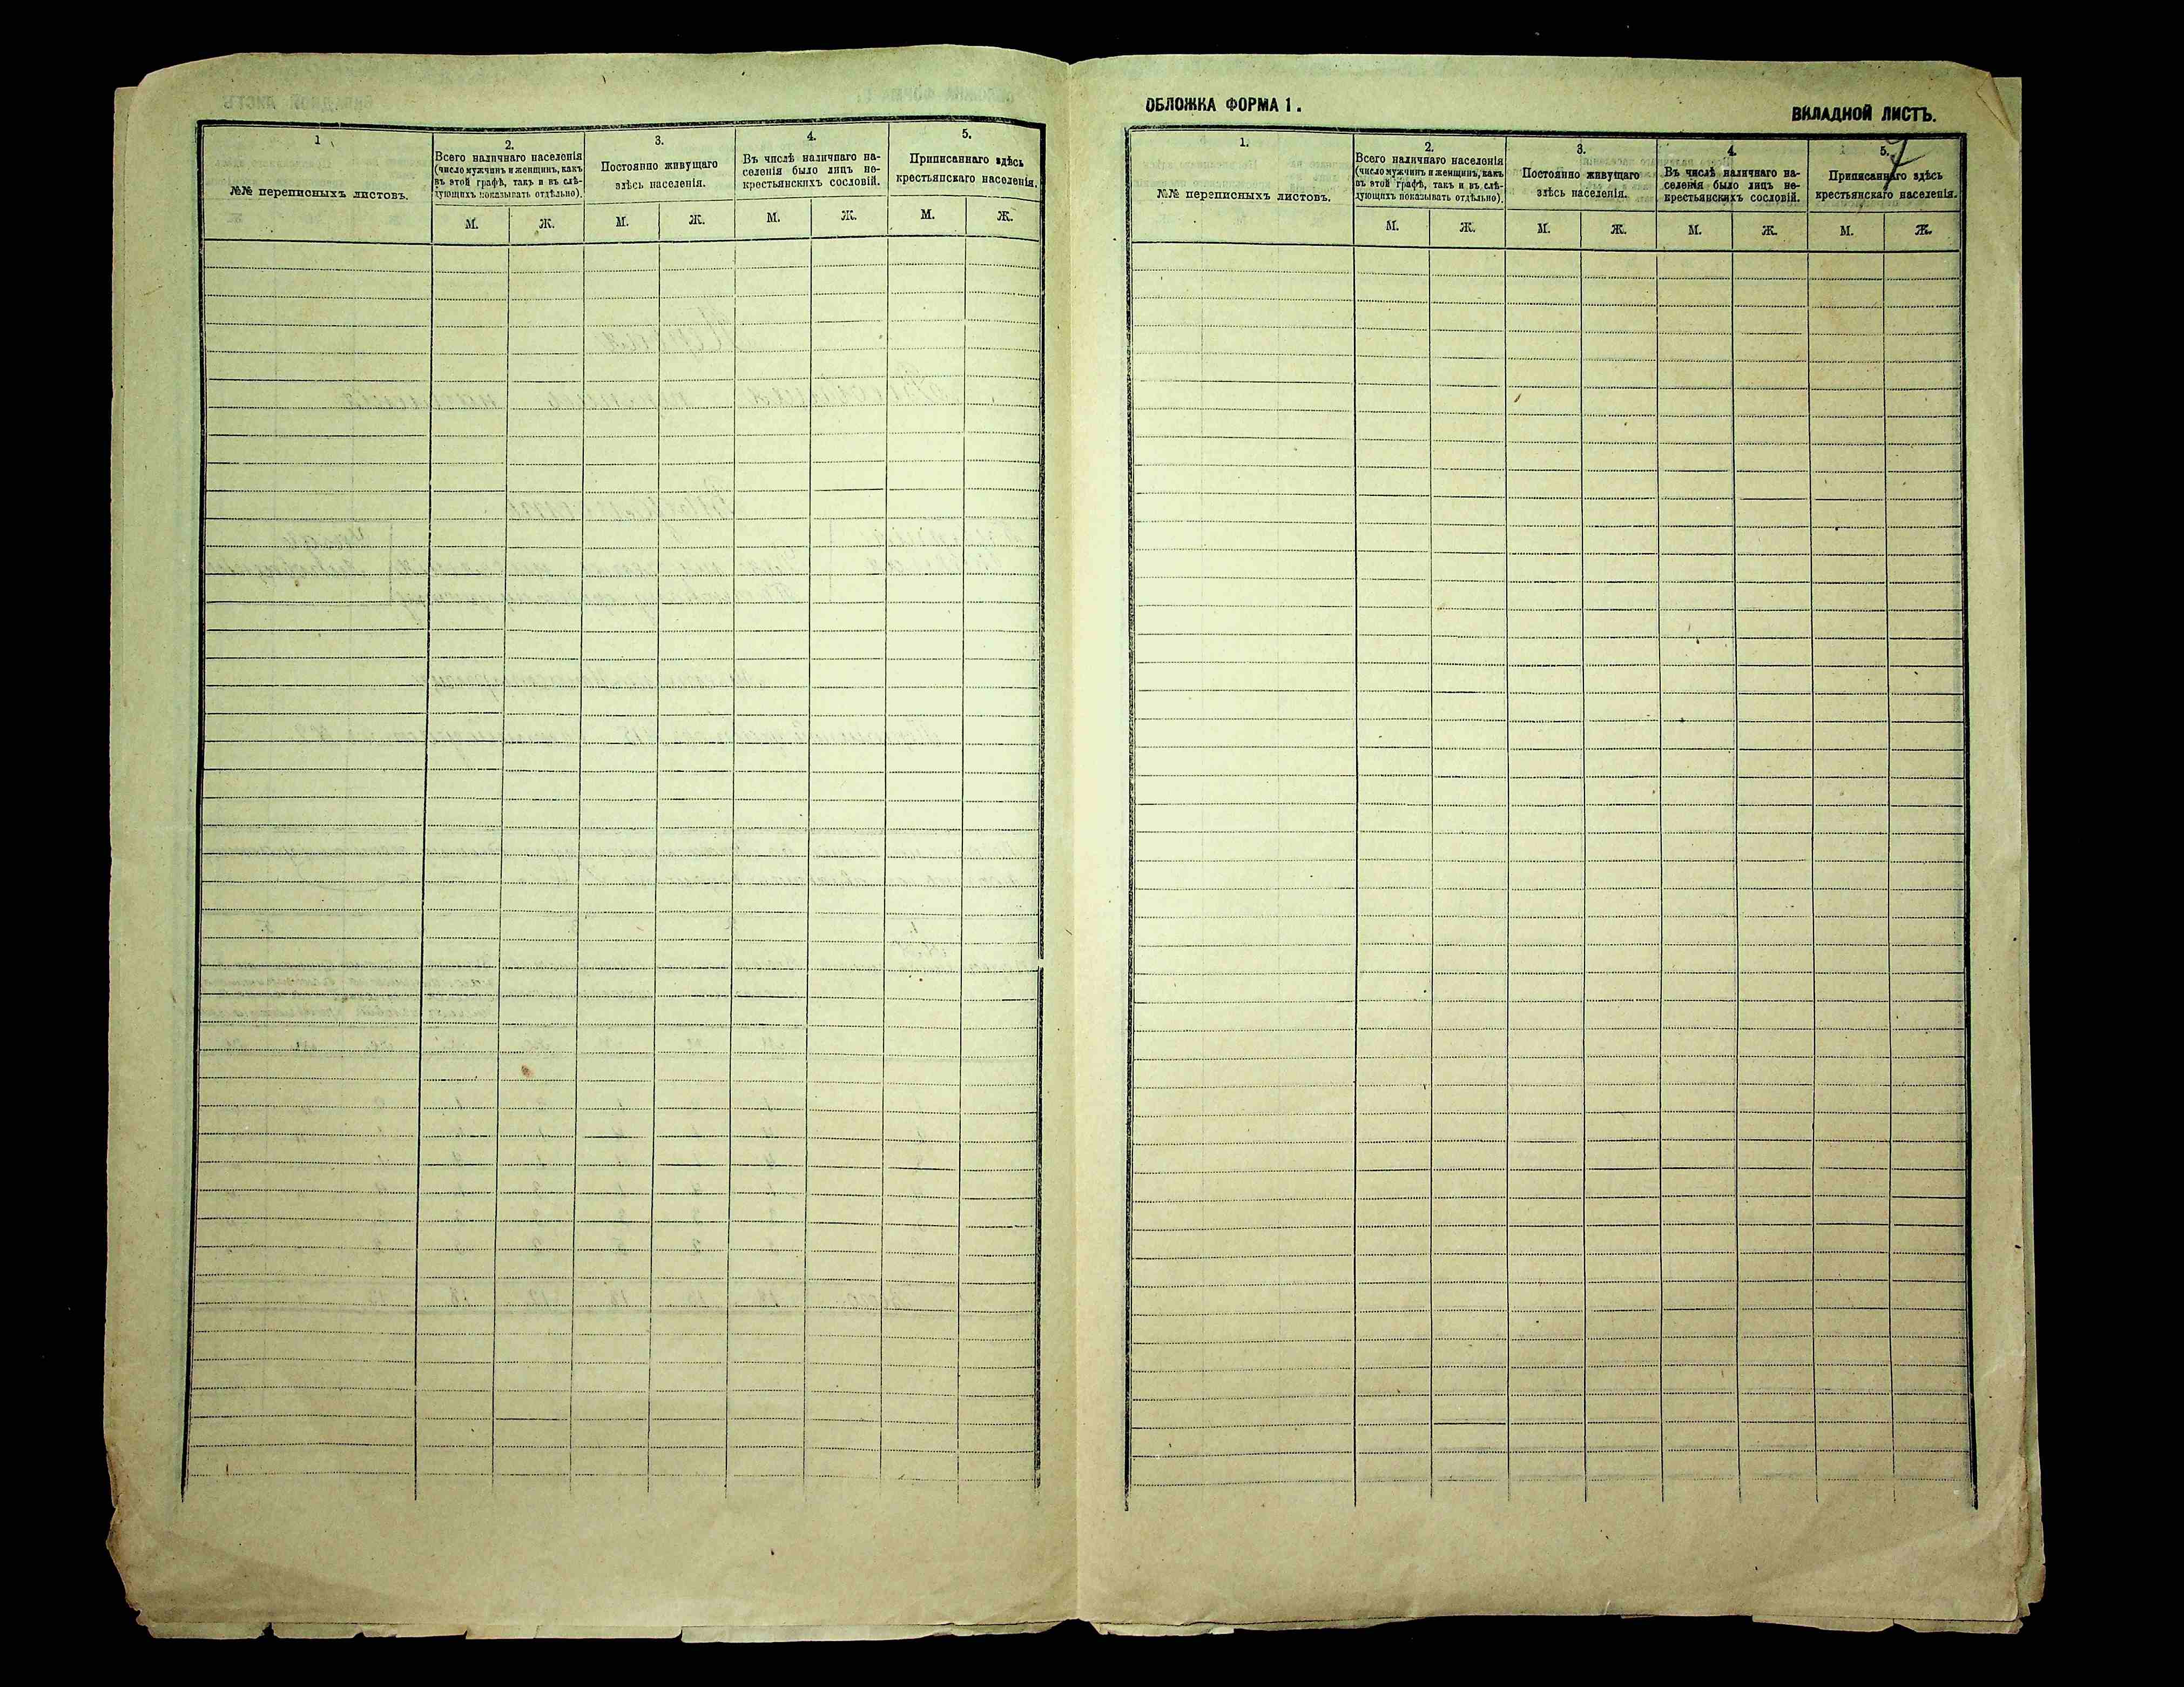 1
№№ переписныхъ листовъ.
2.
Всего наличнаго населенія
(число мужчинъ и женщинъ, какъ
въ этой графѣ, такъ и въ слѣ-
дующихъ показывать отдѣльно).
М. Ж.
3.
Постоянно живущаго
здѣсь населенія.
М. Ж.
4.
Въ числѣ наличнаго на-
селенія было лицъ не-
крестьянскихъ сословій.
М. Ж.
5.
Приписаннаго здѣсь
крестьянскаго населенія.
М. Ж.
ОБЛОЖКА ФОРМА 1.
ВКЛАДНОЙ ЛИСТЪ.
7
1.
№№ переписныхъ листовъ.
2.
Всего наличнаго населенія
(число мужчинъ и женщинъ, какъ
въ этой графѣ, такъ и въ слѣ-
дующихъ показывать отдѣльно).
М. Ж.
3.
Постоянно живущаго
здѣсь населенія.
М. Ж.
4.
Въ числѣ наличнаго на-
селенія было лицъ не-
крестьянскихъ сословій.
М. Ж.
5.
Приписаннаго здѣсь
крестьянскаго населенія.
М. Ж.